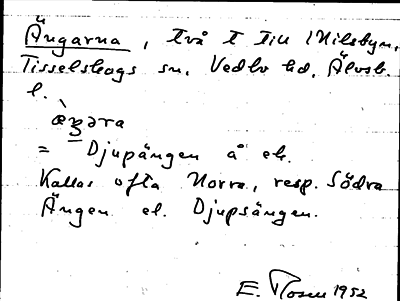 Ängarna, två t till Nilsbyn,
Tisselskogs sn, Vedbo hd, Älvsb.
l.
= Djupängen å ek.
Kallas ofta Norra, resp. Södra
Ängen el. Djupsängen.
E. Rosen 1952